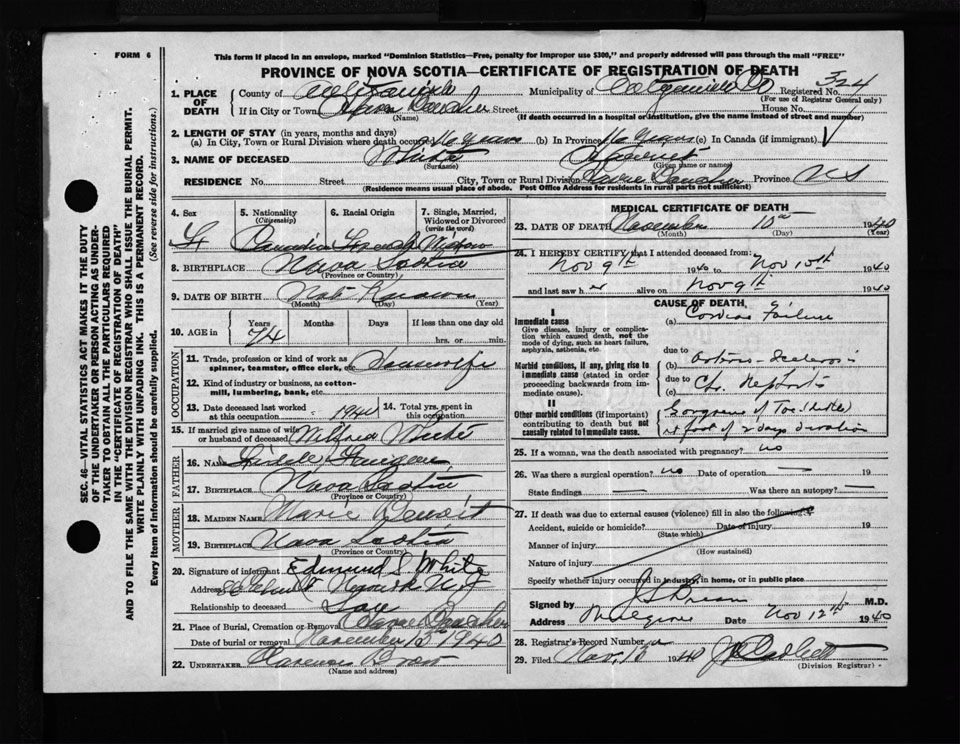 FORM 6
This form if placed in an envelope, marked "Dominion Statistics—Free, penalty for improper use $300," and properly addressed will pass through the mail "FREE"
PROVINCE OF NOVA SCOTIA—CERTIFICATE OF REGISTRATION OF DEATH
324
1. PLACE OF DEATH
County of Antigonish Municipality of Antigonish Co Registered No.
(For use of Registrar General only)
If in City or Town Street House No.
(Name) (If death occurred in a hospital or institution, give the name instead of street and number)
2. LENGTH OF STAY (in years, months and days)
(a) In City, Town or Rural Division where death occurred 16 years (b) In Province 16 years (c) In Canada (if immigrant)
3. NAME OF DECEASED
(Surname) (Given name or names)
RESIDENCE No. Street City, Town or Rural Division Province N S
(Residence means usual place of abode. Post Office Address for residents in rural parts not sufficient)
4. Sex F
5. Nationality (Citizenship) Canadian
6. Racial Origin French
7. Single, Married, Widowed or Divorced (write the word) Widow
8. BIRTHPLACE Nova Scotia
(Province or Country)
9. DATE OF BIRTH Not Known
(Month) (Day) (Year)
10. AGE in Years Months Days If less than one day old
74 hrs. or min.
OCCUPATION
11. Trade, profession or kind of work as spinner, teamster, office clerk, etc. Housewife
12. Kind of industry or business, as cotton-mill, lumbering, bank, etc.
13. Date deceased last worked at this occupation 1940 14. Total yrs. spent in this occupation
15. If married give name of wife or husband of deceased
FATHER
16. NAME
17. BIRTHPLACE Nova Scotia
(Province or Country)
MOTHER
18. MAIDEN NAME Marie Benoit
19. BIRTHPLACE Nova Scotia
(Province or Country)
20. Signature of informant Edmund S. White
Address N.J.
Relationship to deceased Son
21. Place of Burial, Cremation or Removal
Date of burial or removal November 1940
22. UNDERTAKER Clarence
(Name and address)
MEDICAL CERTIFICATE OF DEATH
23. DATE OF DEATH November 10th 1940
(Month) (Day) (Year)
24. I HEREBY CERTIFY that I attended deceased from:
Nov 9th 1940 to Nov 10th 1940
and last saw her alive on Nov 9th 1940
CAUSE OF DEATH
I
Immediate cause
Give disease, injury or complication which caused death, not the mode of dying, such as heart failure, asphyxia, asthenia, etc.
(a) Cardiac Failure
due to
Morbid conditions, if any, giving rise to immediate cause (stated in order proceeding backwards from immediate cause).
(b) Arterio-Sclerosis
due to
(c) Chr. Nephritis
II
Other morbid conditions (if important) contributing to death but not causally related to immediate cause.
Gangrene of Toe
foot of 2 days duration
25. If a woman, was the death associated with pregnancy? no
26. Was there a surgical operation? no Date of operation — 19
State findings — Was there an autopsy? —
27. If death was due to external causes (violence) fill in also the following:
Accident, suicide or homicide? Date of injury 19
(State which)
Manner of injury
(How sustained)
Nature of injury
Specify whether injury occurred in industry, in home, or in public place
Signed by M.D.
Address Mulgrave Date Nov 12th 1940
28. Registrar's Record Number
29. Filed Nov. 1940
(Division Registrar)
SEC. 46—VITAL STATISTICS ACT MAKES IT THE DUTY
OF THE UNDERTAKER OR PERSON ACTING AS UNDER-
TAKER TO OBTAIN ALL THE PARTICULARS REQUIRED
IN THE "CERTIFICATE OF REGISTRATION OF DEATH"
AND TO FILE THE SAME WITH THE DIVISION REGISTRAR WHO SHALL ISSUE THE BURIAL PERMIT.
WRITE PLAINLY WITH UNFADING INK. THIS IS A PERMANENT RECORD.
Every item of information should be carefully supplied. (See reverse side for instructions.)